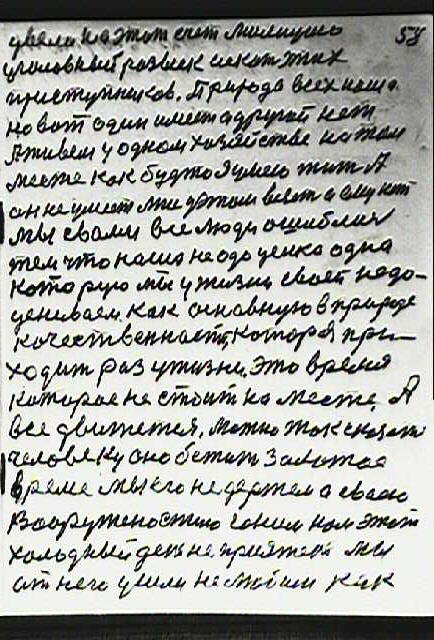 увели на этот счет милицию 58
уголовный розыск искат этих
приступников. Природа всех наша.
но вот один имеет а другой нет
Я живем у одном хозяйстве на том
месте как будто я умею жит А
он не умеет мне дают всем а ему нет
мы свами все люди ошиблис
тем что наша недо ценка одна
которую мы ужизни своей недо-
цениваем. Как основную в природе
качественност, которая при-
ходит раз ужизни. Это время
которое не стоит на месте. А
все движется. Можно так сказат
человеку оно бежит Золотое
время мы его не держем а своею
Вооруженостию гоним нам этот
холодный ден не приятен мы
от него ушли не любим как